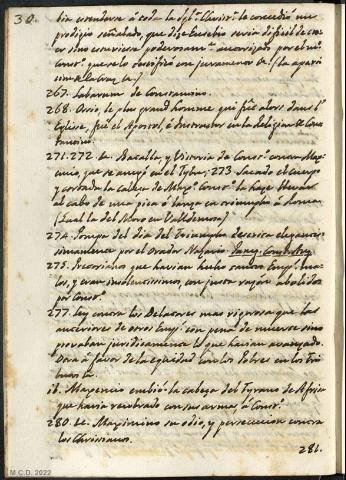 30.
bir extenderse á toda la Igl.ª Christ.ª le concedió un
prodigio señalado, que dize Eusebio seria dificil de cre-
er sino estuviera poderosam.te autorizado por el mi
Const.º que se lo testificó con juramento &. (la apari
cion de la Cruz &.)
267. Labarum de Constantino.
268. Osio, le plus grand homme qui fut alors dans l'
Eglise, fué el Apostol, é Instructor en la Religion de Cons
tantino.
271. 272 &. Batalla, y Vitoria de Const.º contra Maxº
encio, que se anegó en el Tyber; 273 Sacado el Cuerpo
y cortada la cabeza de Max.º Const.º la haze llevar
al cabo de una pica ó lanza en triumpho á Roma
(Igual la del Moro en Valldemosa)
274. Pompa del dia del Triumpho descrita elegantis-
simamente por el Orador Nazario. Paneg. Const. Aug.
275. Pretorianos que havian hecho tantos Emp.es ma-
los, y eran insolentissimos, con justa razon abolidos
por Const.º
277. Ley contra los Delatores mas rigorosa que las
anteriores de otros Emp.es con pena de muerte sino
provaban juridicamente lo que havian avanzado.
Otra á favor de la equidad con los Pobres en los Tri
bunales.
id. Maxencio embió la cabeza del Tyrano de Africa
que havia recobrado con sus armas, á Const.ª
280. &. Maximino su odio, y persecucion contra
los Christianos.
281.
M.C.D. 2022